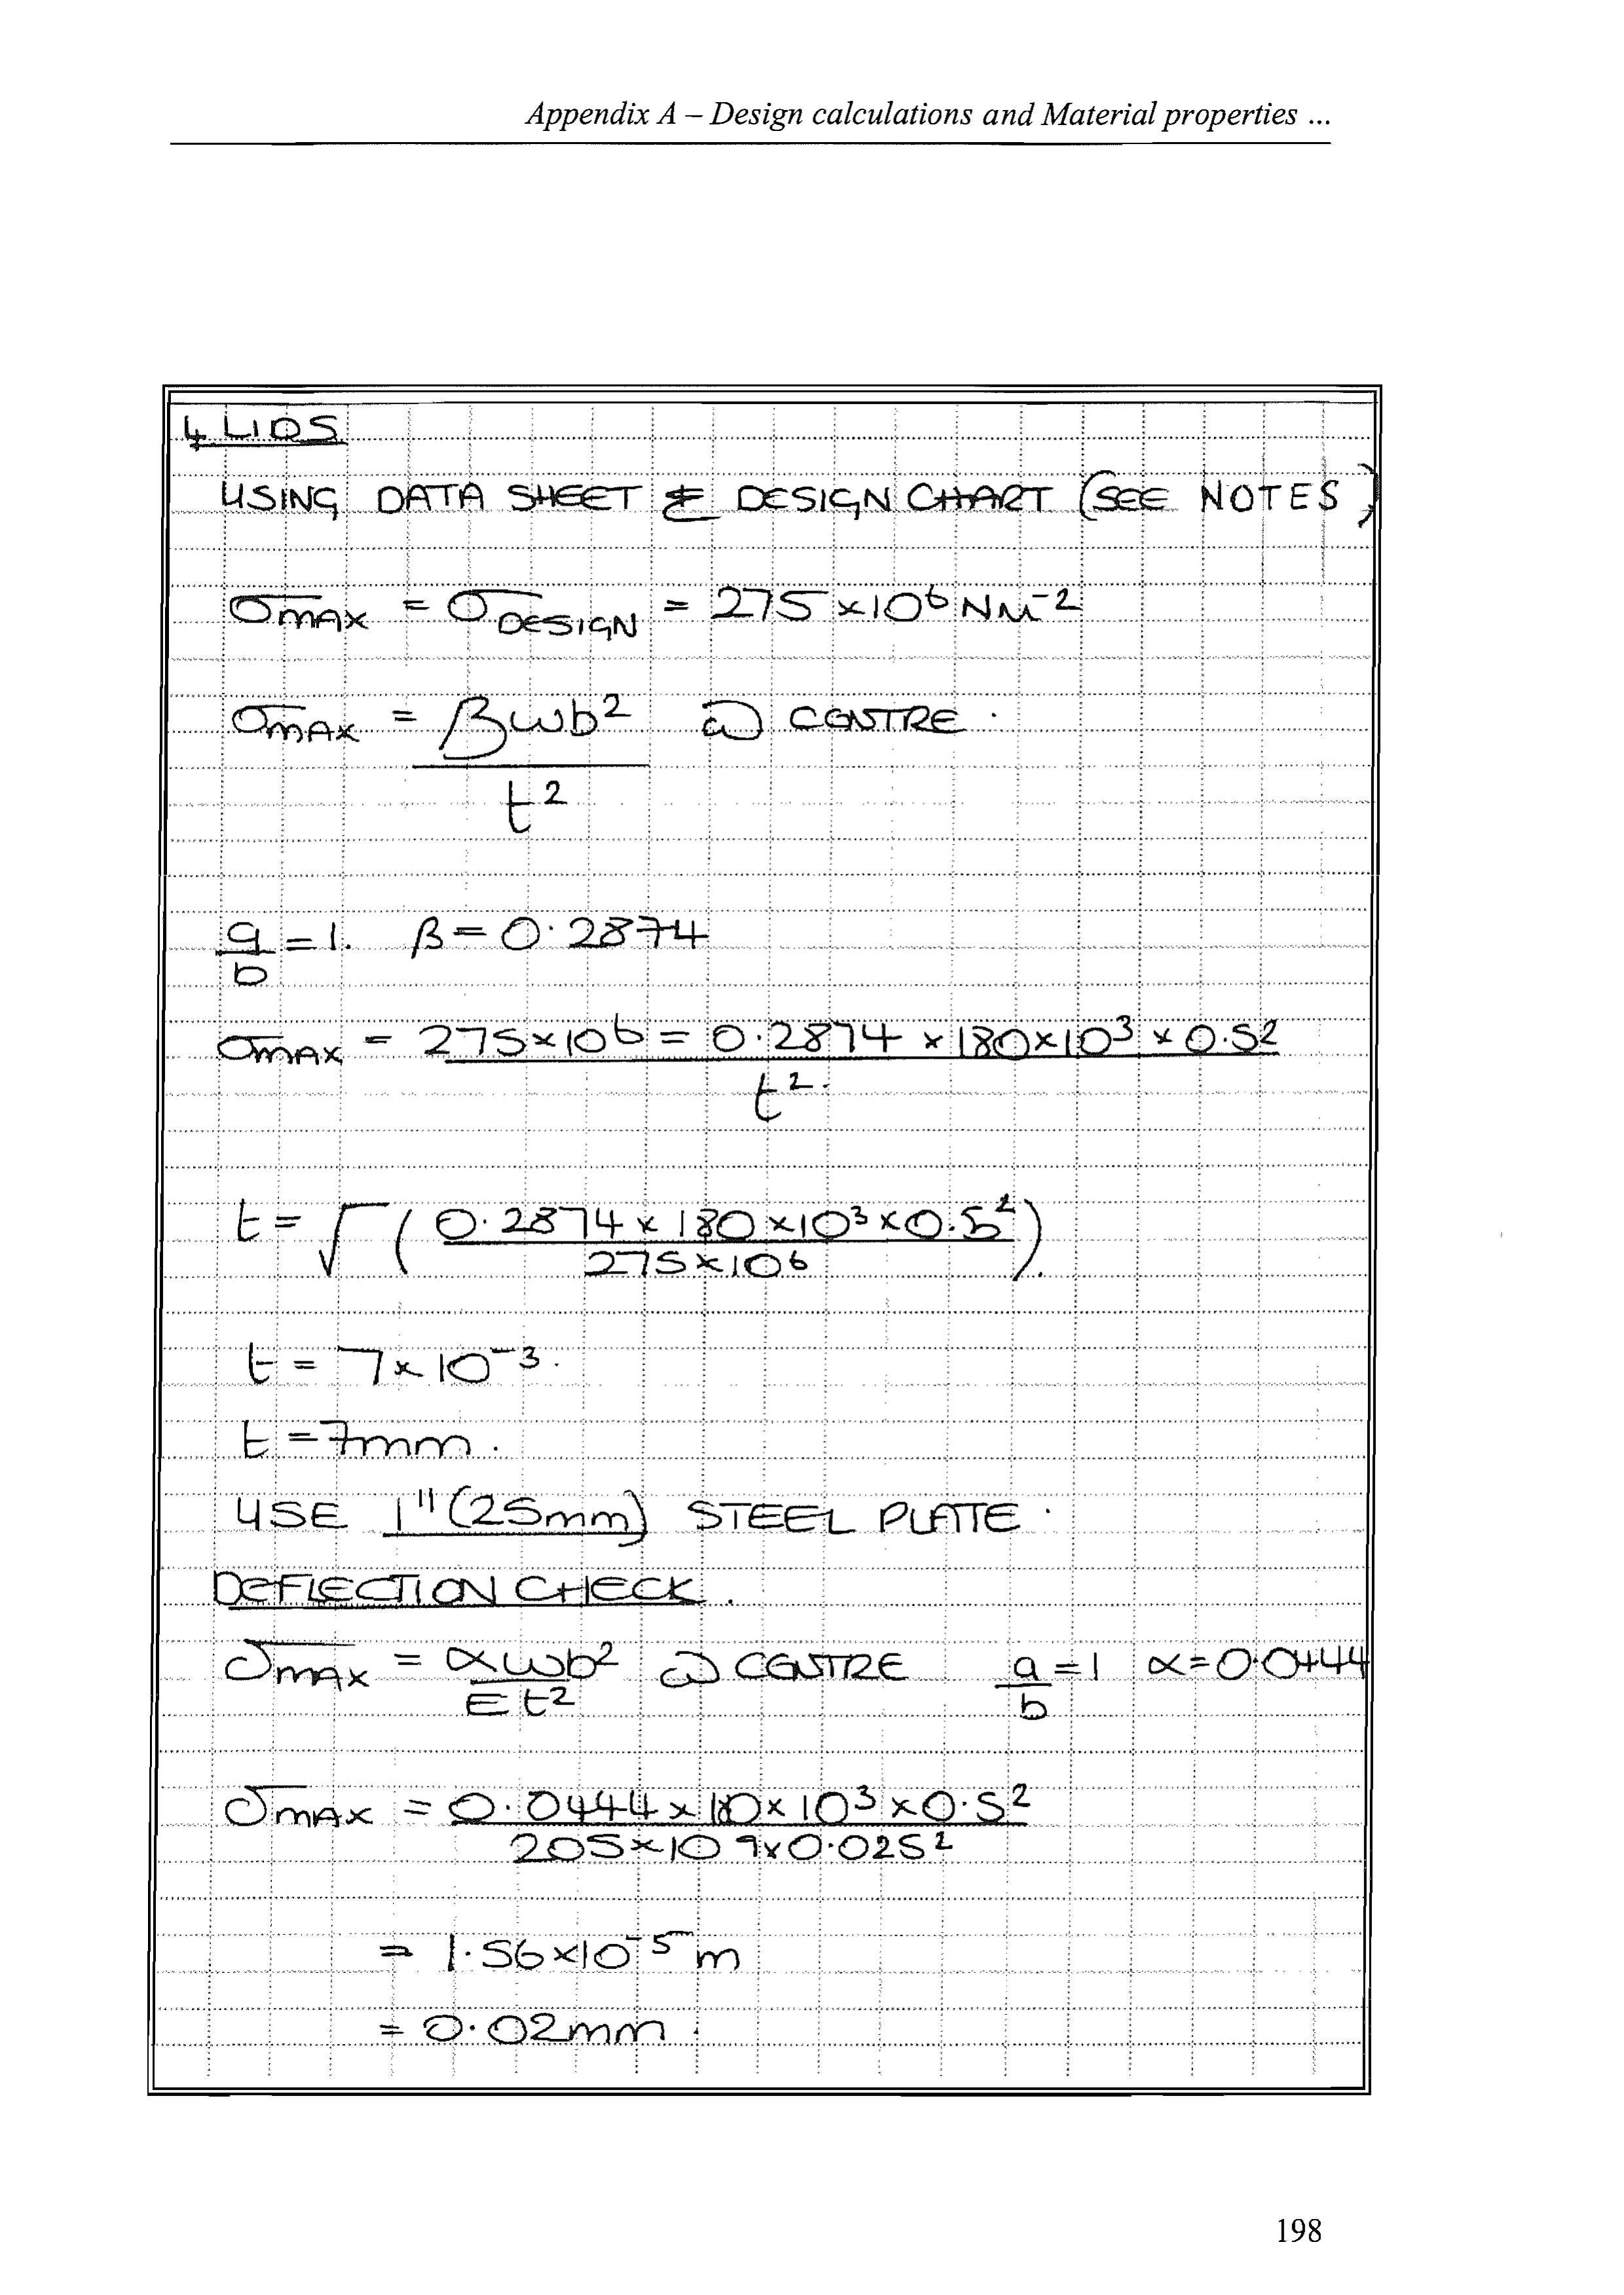 Appendix A – Design calculations and Material properties ...
4. LIDS
USING DATA SHEET & DESIGN CHART (SEE NOTES)
σMAX = σDESIGN = 275 × 10⁶ NM⁻²
σMAX = βωb² @ CENTRE.
t²
a = 1. β = 0.2874
b
σMAX = 275×10⁶ = 0.2874 × 180×10³ × 0.5²
t².
t = √( 0.2874 × 180 × 10³ × 0.5² ).
275×10⁶
t = 7×10⁻³.
t = 7mm.
USE 1" (25mm) STEEL PLATE.
DEFLECTION CHECK.
δMAX = αωb² @ CENTRE a = 1 α = 0.0444
Et² b
δMAX = 0.0444 × 180 × 10³ × 0.5²
205×10⁹×0.025²
= 1.56×10⁻⁵ m
= 0.02mm.
198